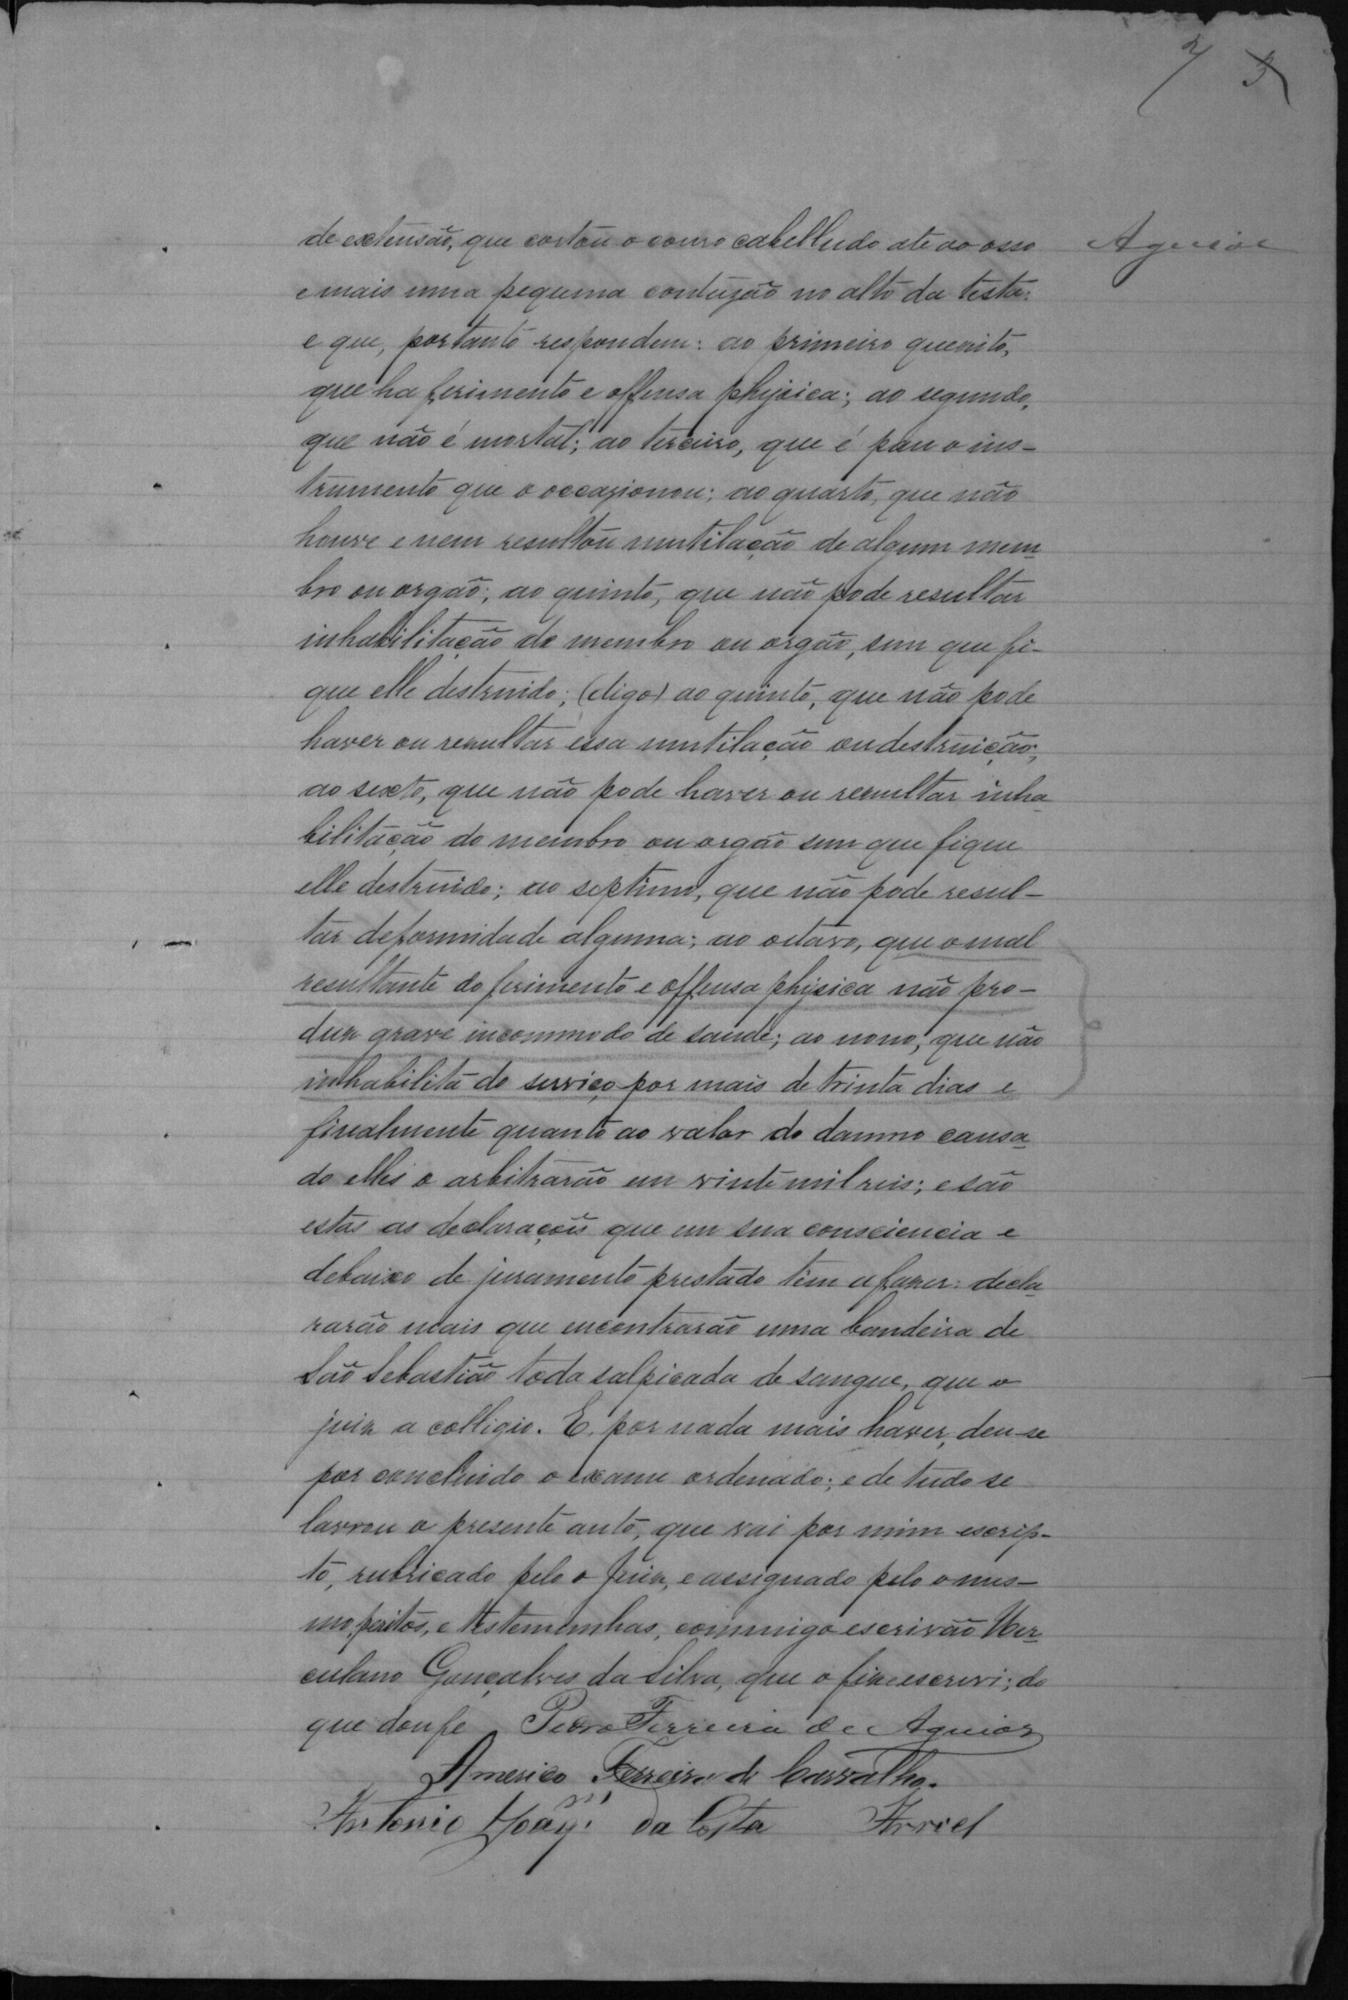 2 3
Aguiar
de extensão, que cortou o couro cabelludo até ao osso
e mais uma pequena contuzão no alto da testa:
e que, portanto respondem: ao primeiro quezito,
que ha ferimento e offensa physica; ao segundo,
que não é mortal; ao terceiro, que é pau o ins-
trumento que o occazionou; ao quarto, que não
houve e nem resultou mutilação de algum mem-
bro ou orgão; ao quinto, que não pode resultar
inhabilitação de membro ou orgão, sem que fi-
que elle destruido; (digo) ao quinto, que não pode
haver ou resultar essa mutilação ou destruição;
ao sexto, que não pode haver ou resultar inha-
bilitação do membro ou orgão sem que fique
elle destruido; ao septimo, que não pode resul-
tar deformidade alguma; ao oitavo, que o mal
resultante do ferimento e offensa physica não pro-
duz grave incommodo de saude; ao nono, que não
inhabilita do serviço por mais de trinta dias e
finalmente quanto ao valor do damno causa-
do elles o arbitrarão em vinte mil reis; e são
estas as declarações que em sua consciencia e
debaixo de juramento prestado têm a fazer: decla-
rarão mais que encontrarão uma bandeira de
São Sebastião toda salpicada de sangue, que o
juiz a colligio. E, por nada mais haver, deu-se
por concluido o exame ordenado; e de tudo se
lavrou o presente auto, que vai por mim escrip-
to, rubricado pelo o Juiz, e assignado pelo o mes-
mo, peritos, e testemunhas, commigo escrivão Her-
culano Gonçalves da Silva, que o fiz e escrevi; do
que dou fe Pedro Ferreira de Aguiar
Americo Ferreira de Carvalho.
Antonio da Costa